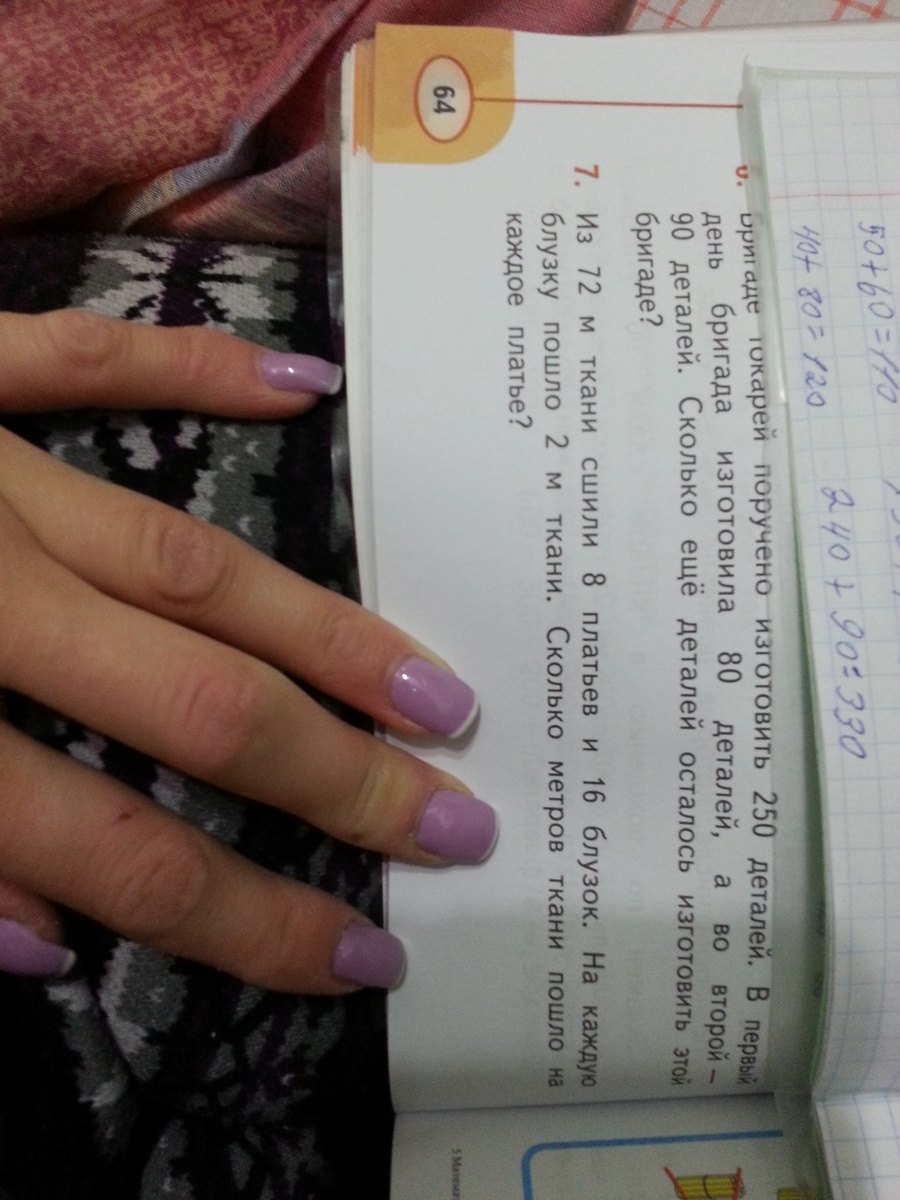 50+60=110
40+80=120 240+90=330
6. Бригаде токарей поручено изготовить 250 деталей. В первый
день бригада изготовила 80 деталей, а во второй –
90 деталей. Сколько ещё деталей осталось изготовить этой
бригаде?
7. Из 72 м ткани сшили 8 платьев и 16 блузок. На каждую
блузку пошло 2 м ткани. Сколько метров ткани пошло на
каждое платье?
64